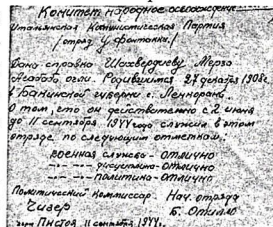 Комитет народное освобождение
Итальянская Коммунистическая Партия
/отряд у Фонтанки/
Дана справка Шахвердиеву Мерзо
Асадов огли. Родившемуся 27 декабря 1908г
в Бакинской губерни г. Ленкорани
о том, что он действительно с 2 июня
до 11 сентября 1944 года служил в этом
отряде по следующим отметкам.
Военная служба - Отлично
— " — дисциплина - Отлично
— " — политика - Отлично
Политический комиссар. Нач. отряда
Чизер Б. Отилло
Пистоя, 11 сентября 1944г.